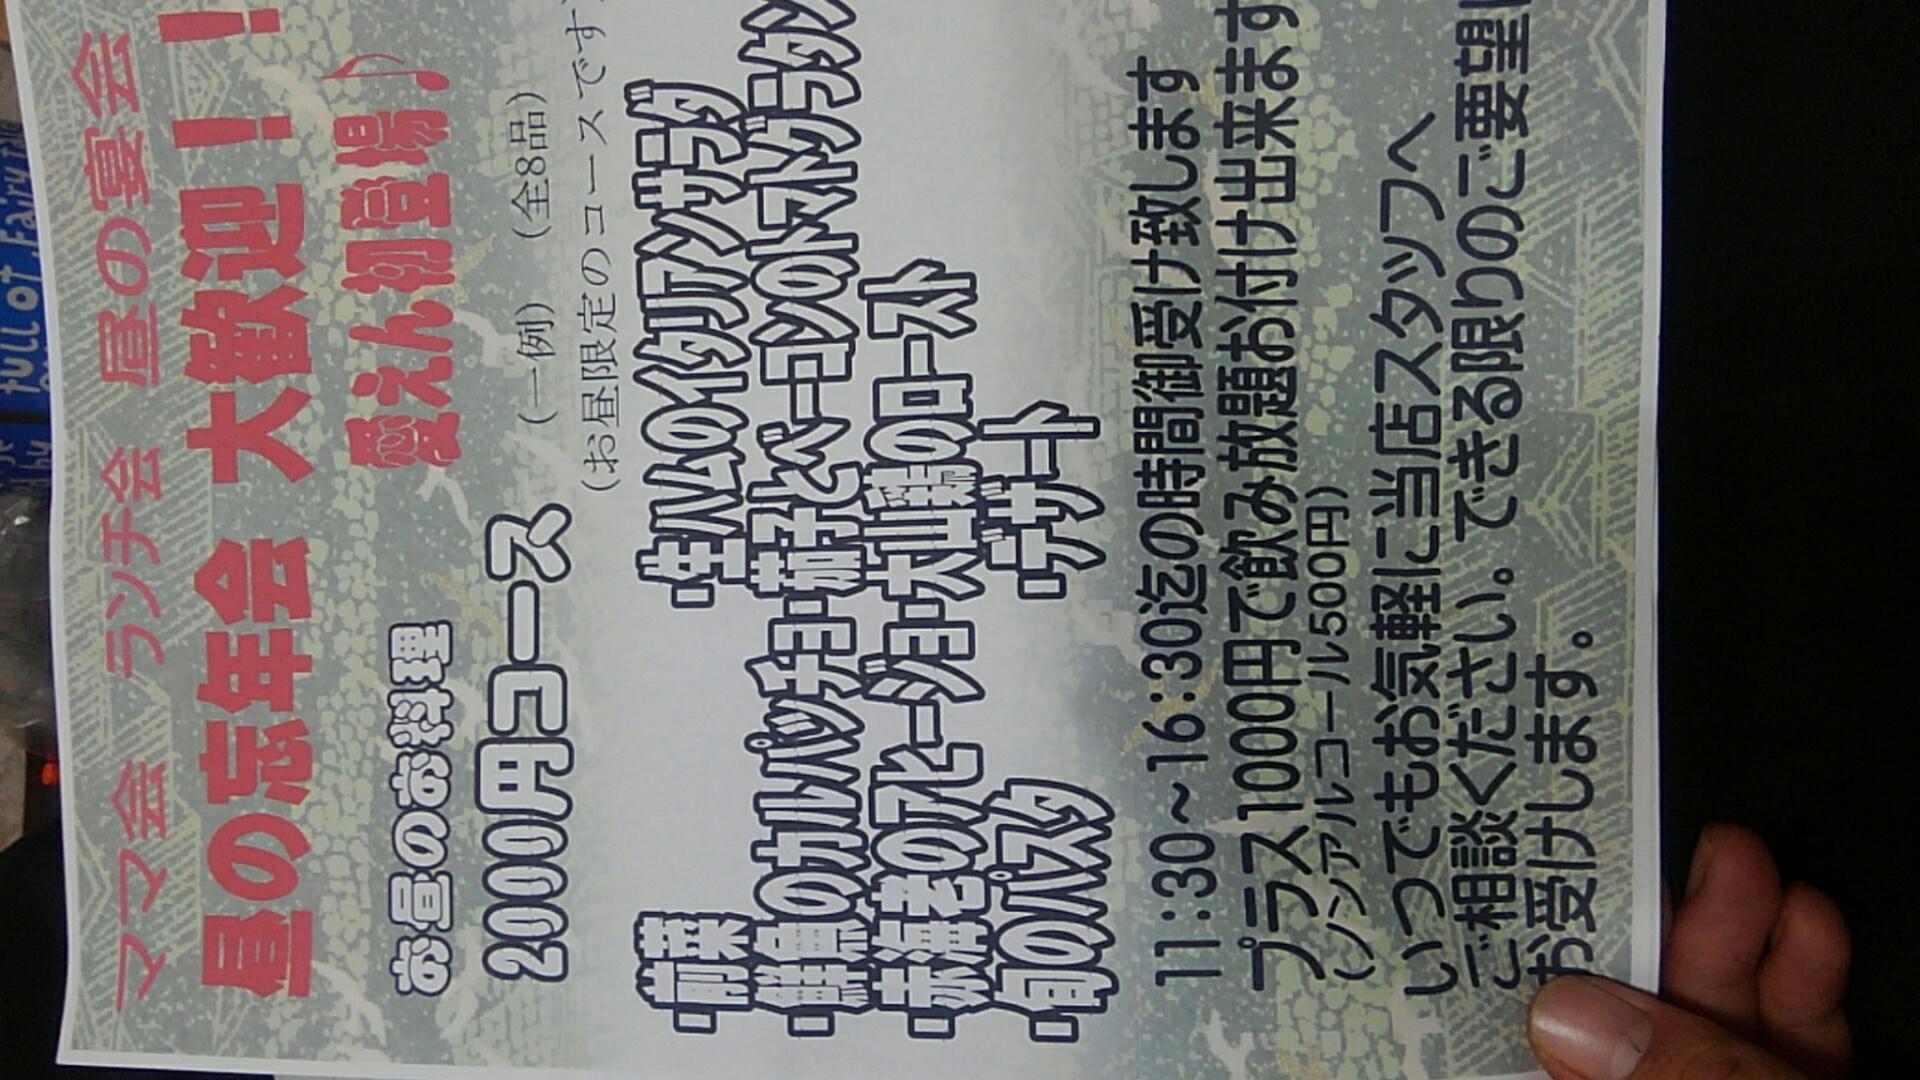 ママ会 ランチ会 昼の宴会
昼の忘年会 大歓迎!!
愛えん初登場♪
お昼のお料理
2000円コース (一例) (全8品)
(お昼限定のコースです
・前菜 ・生ハムのイタリアンサラダ
・鮮魚のカルパッチョ・茄子とベーコンのトマトグラタン
・赤海老のアヒージョ・大山鶏のロースト
・旬のパスタ ・デザート
11:30~16:30迄の時間御受け致します
プラス1000円で飲み放題お付け出来ます
(ノンアルコール500円)
いつでもお気軽に当店スタッフへ
ご相談ください。できる限りのご要望
お受けします。
full of fairy
by